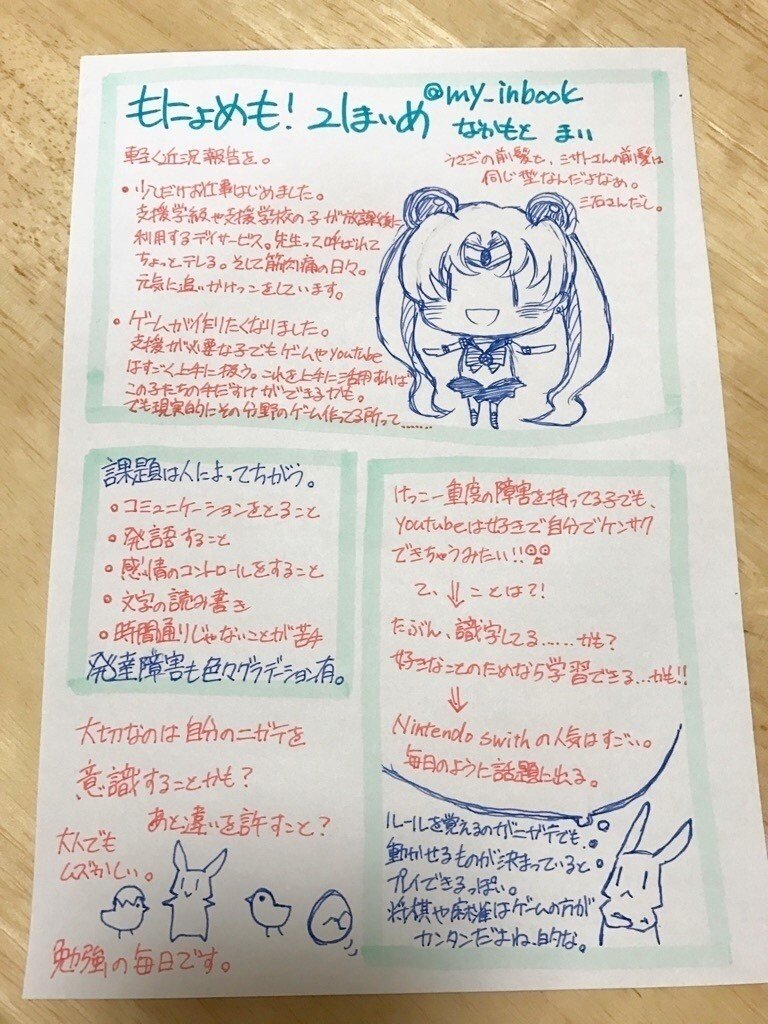 もにょめも! 21まいめ
@my_inbook
なかもと まい
軽く近況報告を。
・少しだけお仕事はじめました。
支援学級や支援学校の子が放課後に
利用するデイサービス。先生って呼ばれて
ちょっとテレる。そして筋肉痛の日々。
元気に追いかけっこをしています。
うさぎの前髪と、ミサトさんの前髪は
同じ型なんだよなぁ。
三石さんだし。
・ゲームが作りたくなりました。
支援が必要な子でもゲームやYoutube
はすごく上手に扱う。これを上手に活用すれば
この子たちの手だすけができるかも。
でも現実的にその分野のゲーム作ってる所って……
課題は人によってちがう。
・コミュニケーションをとること
・発語すること
・感情のコントロールをすること
・文字の読み書き
・時間通りじゃないことが苦手
発達障害も色々グラデーション有。
けっこー重度の障害を持ってる子でも、
Youtubeは好きで自分でケンサク
できちゃうみたい!!
て、ことは?!
たぶん、識字してる……かも?
好きなことのためなら学習できる…かも!!
Nintendo swithの人気はすごい。
毎日のように話題に出る。
ルールを覚えるのがニガテでも、
動かせるものが決まっていると
プレイできるっぽい。
将棋や麻雀はゲームの方が
カンタンだよね、的な。
大切なのは自分のニガテを
意識することかも?
あと違いを許すこと?
大人でも
ムズかしい。
勉強の毎日です。